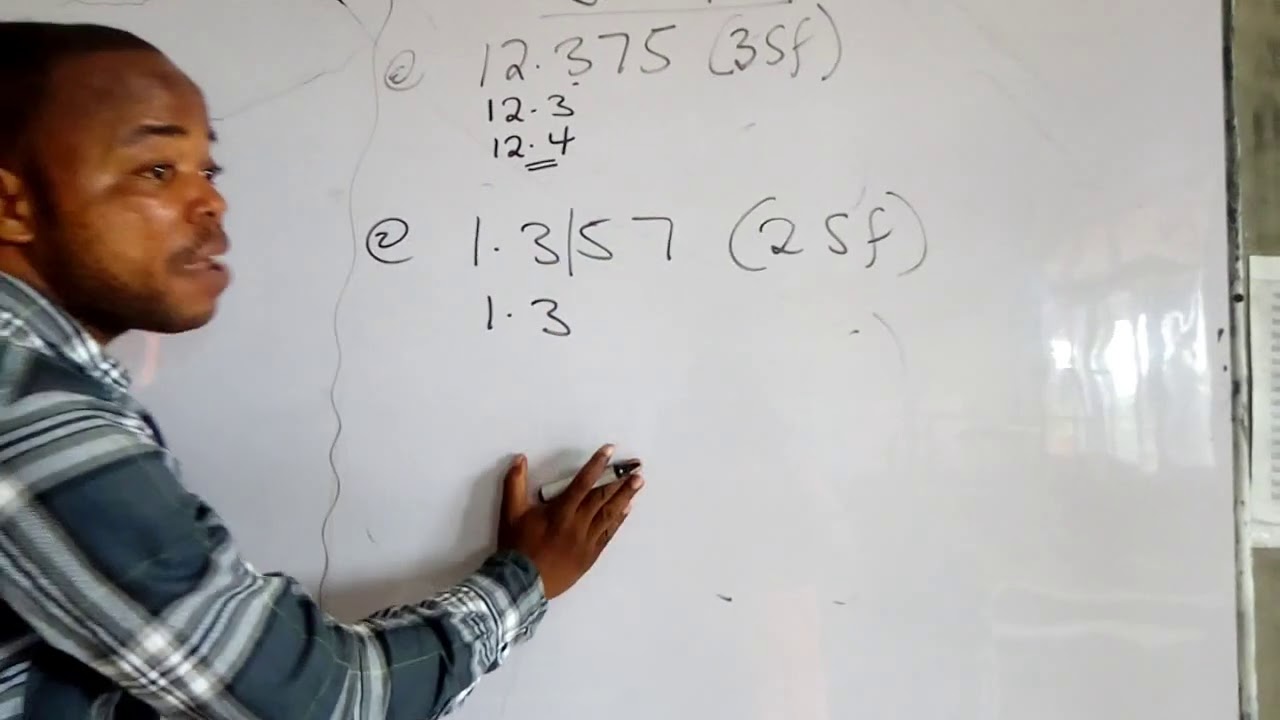 @ 12.375 (3sf)
12.3
12.4
② 1.3|57 (2sf)
1.3